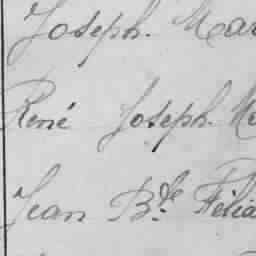 Joseph. Mar
René Joseph. M
Jean Bte Félia